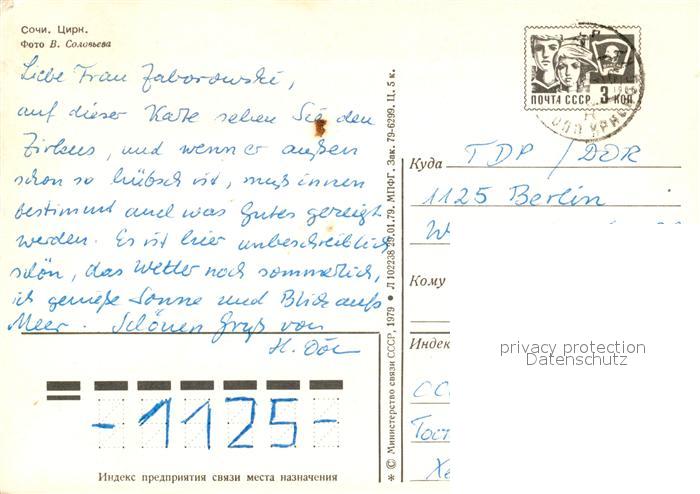 Сочи. Цирк.
Фото В. Соловьева
Liebe Frau Zaborowski,
auf dieser Karte sehen Sie den
Zirkus, und wenn er außen
schon so hübsch ist, muß innen
bestimmt auch was Gutes gezeigt
werden. Es ist hier unbeschreiblich
schön, das Wetter noch sommerlich,
ich genieße Sonne und Blick aufs
Meer. Schönen Gruß von
H.
-1125-
Индекс предприятия связи места назначения
* © Министерство связи СССР, 1979 ● Л 102238 29.01.79. МПФГ. Зак. 79-6299. Ц. 5 к.
ПОЧТА СССР 3 КОП
Куда ГДР / DDR
1125 Berlin
Кому
Индек
privacy protection
Datenschutz